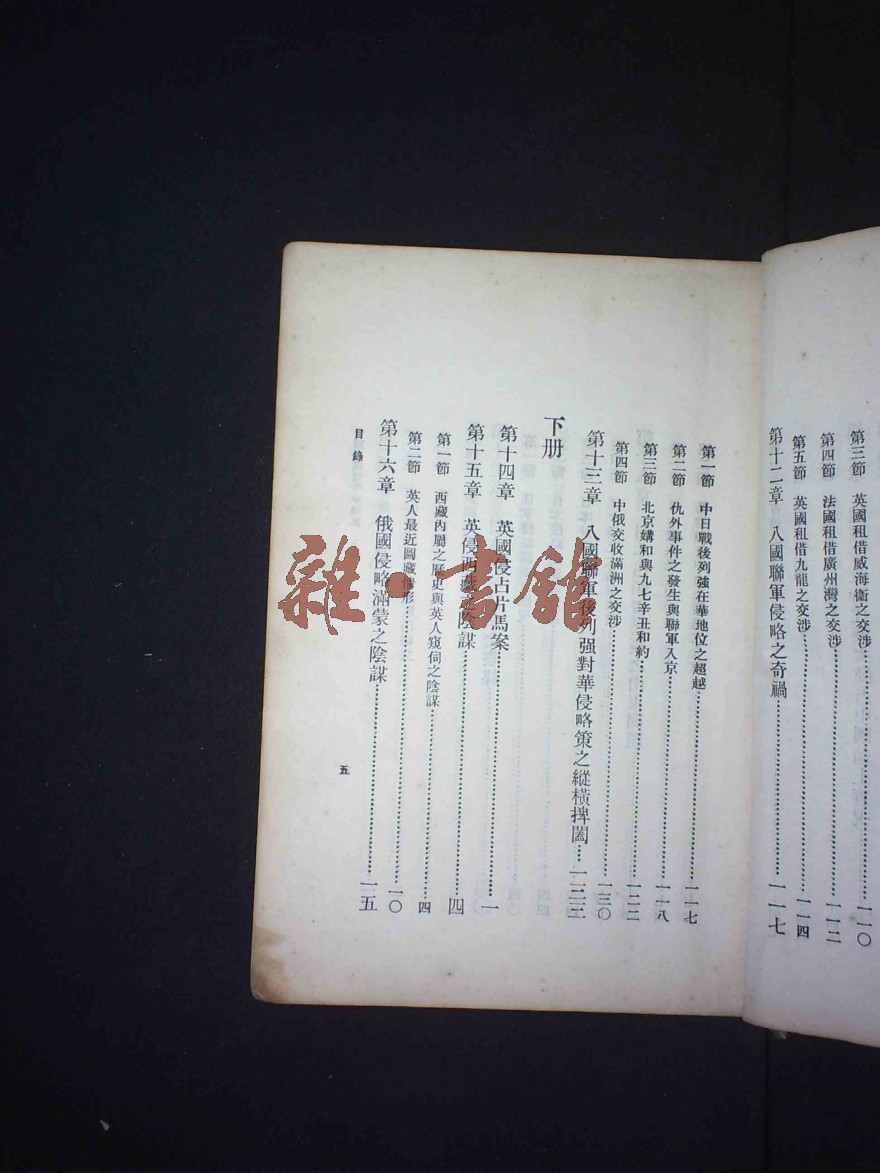 第三節 英國租借威海衞之交涉……一一〇
第四節 法國租借廣州灣之交涉……一一二
第五節 英國租借九龍之交涉……一一四
第十二章 八國聯軍侵略之奇禍……一一七
第一節 中日戰後列強在華地位之超越……一一七
第二節 仇外事件之發生與聯軍入京……一一八
第三節 北京媾和與九七辛丑和約……一二二
第四節 中俄交收滿洲之交涉……一三〇
第十三章 八國聯軍後列强對華侵略策之縱橫捭闔…一三三
下册
第十四章 英國侵占片馬案……一
第十五章 英侵西藏之陰謀……四
第一節 西藏內屬之歷史與英人窺伺之陰謀……四
第二節 英人最近圖藏情形……一〇
第十六章 俄國侵略滿蒙之陰謀……一五
目錄
五
雜·書館